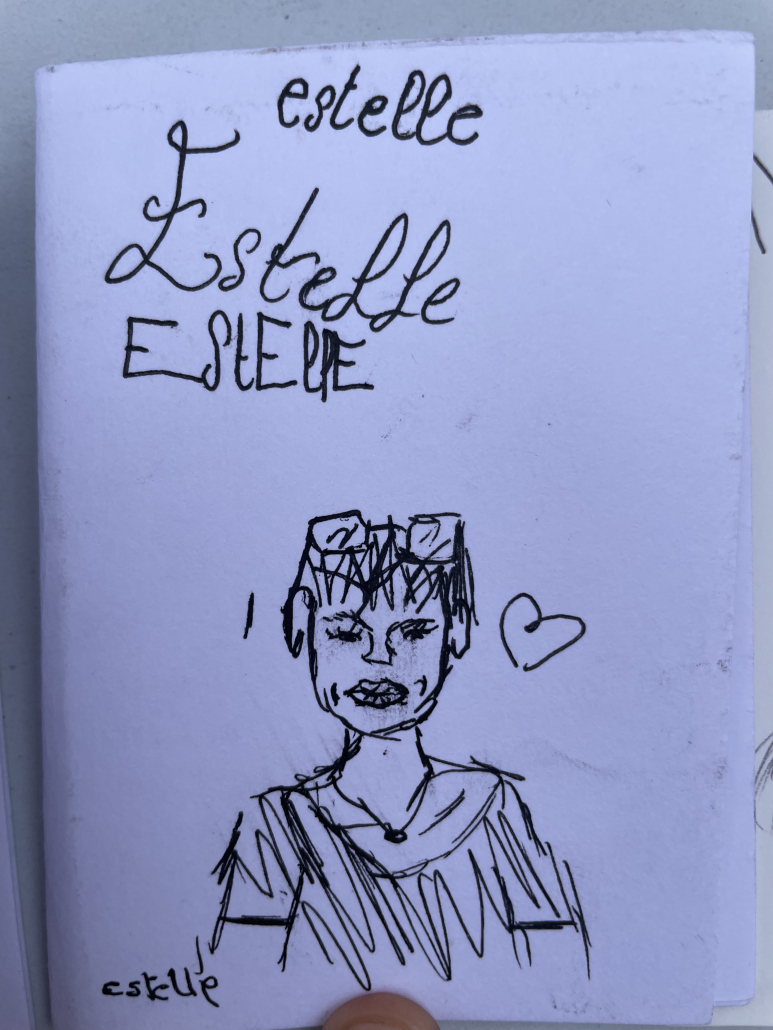 estelle
Estelle
EStEllE
estelle